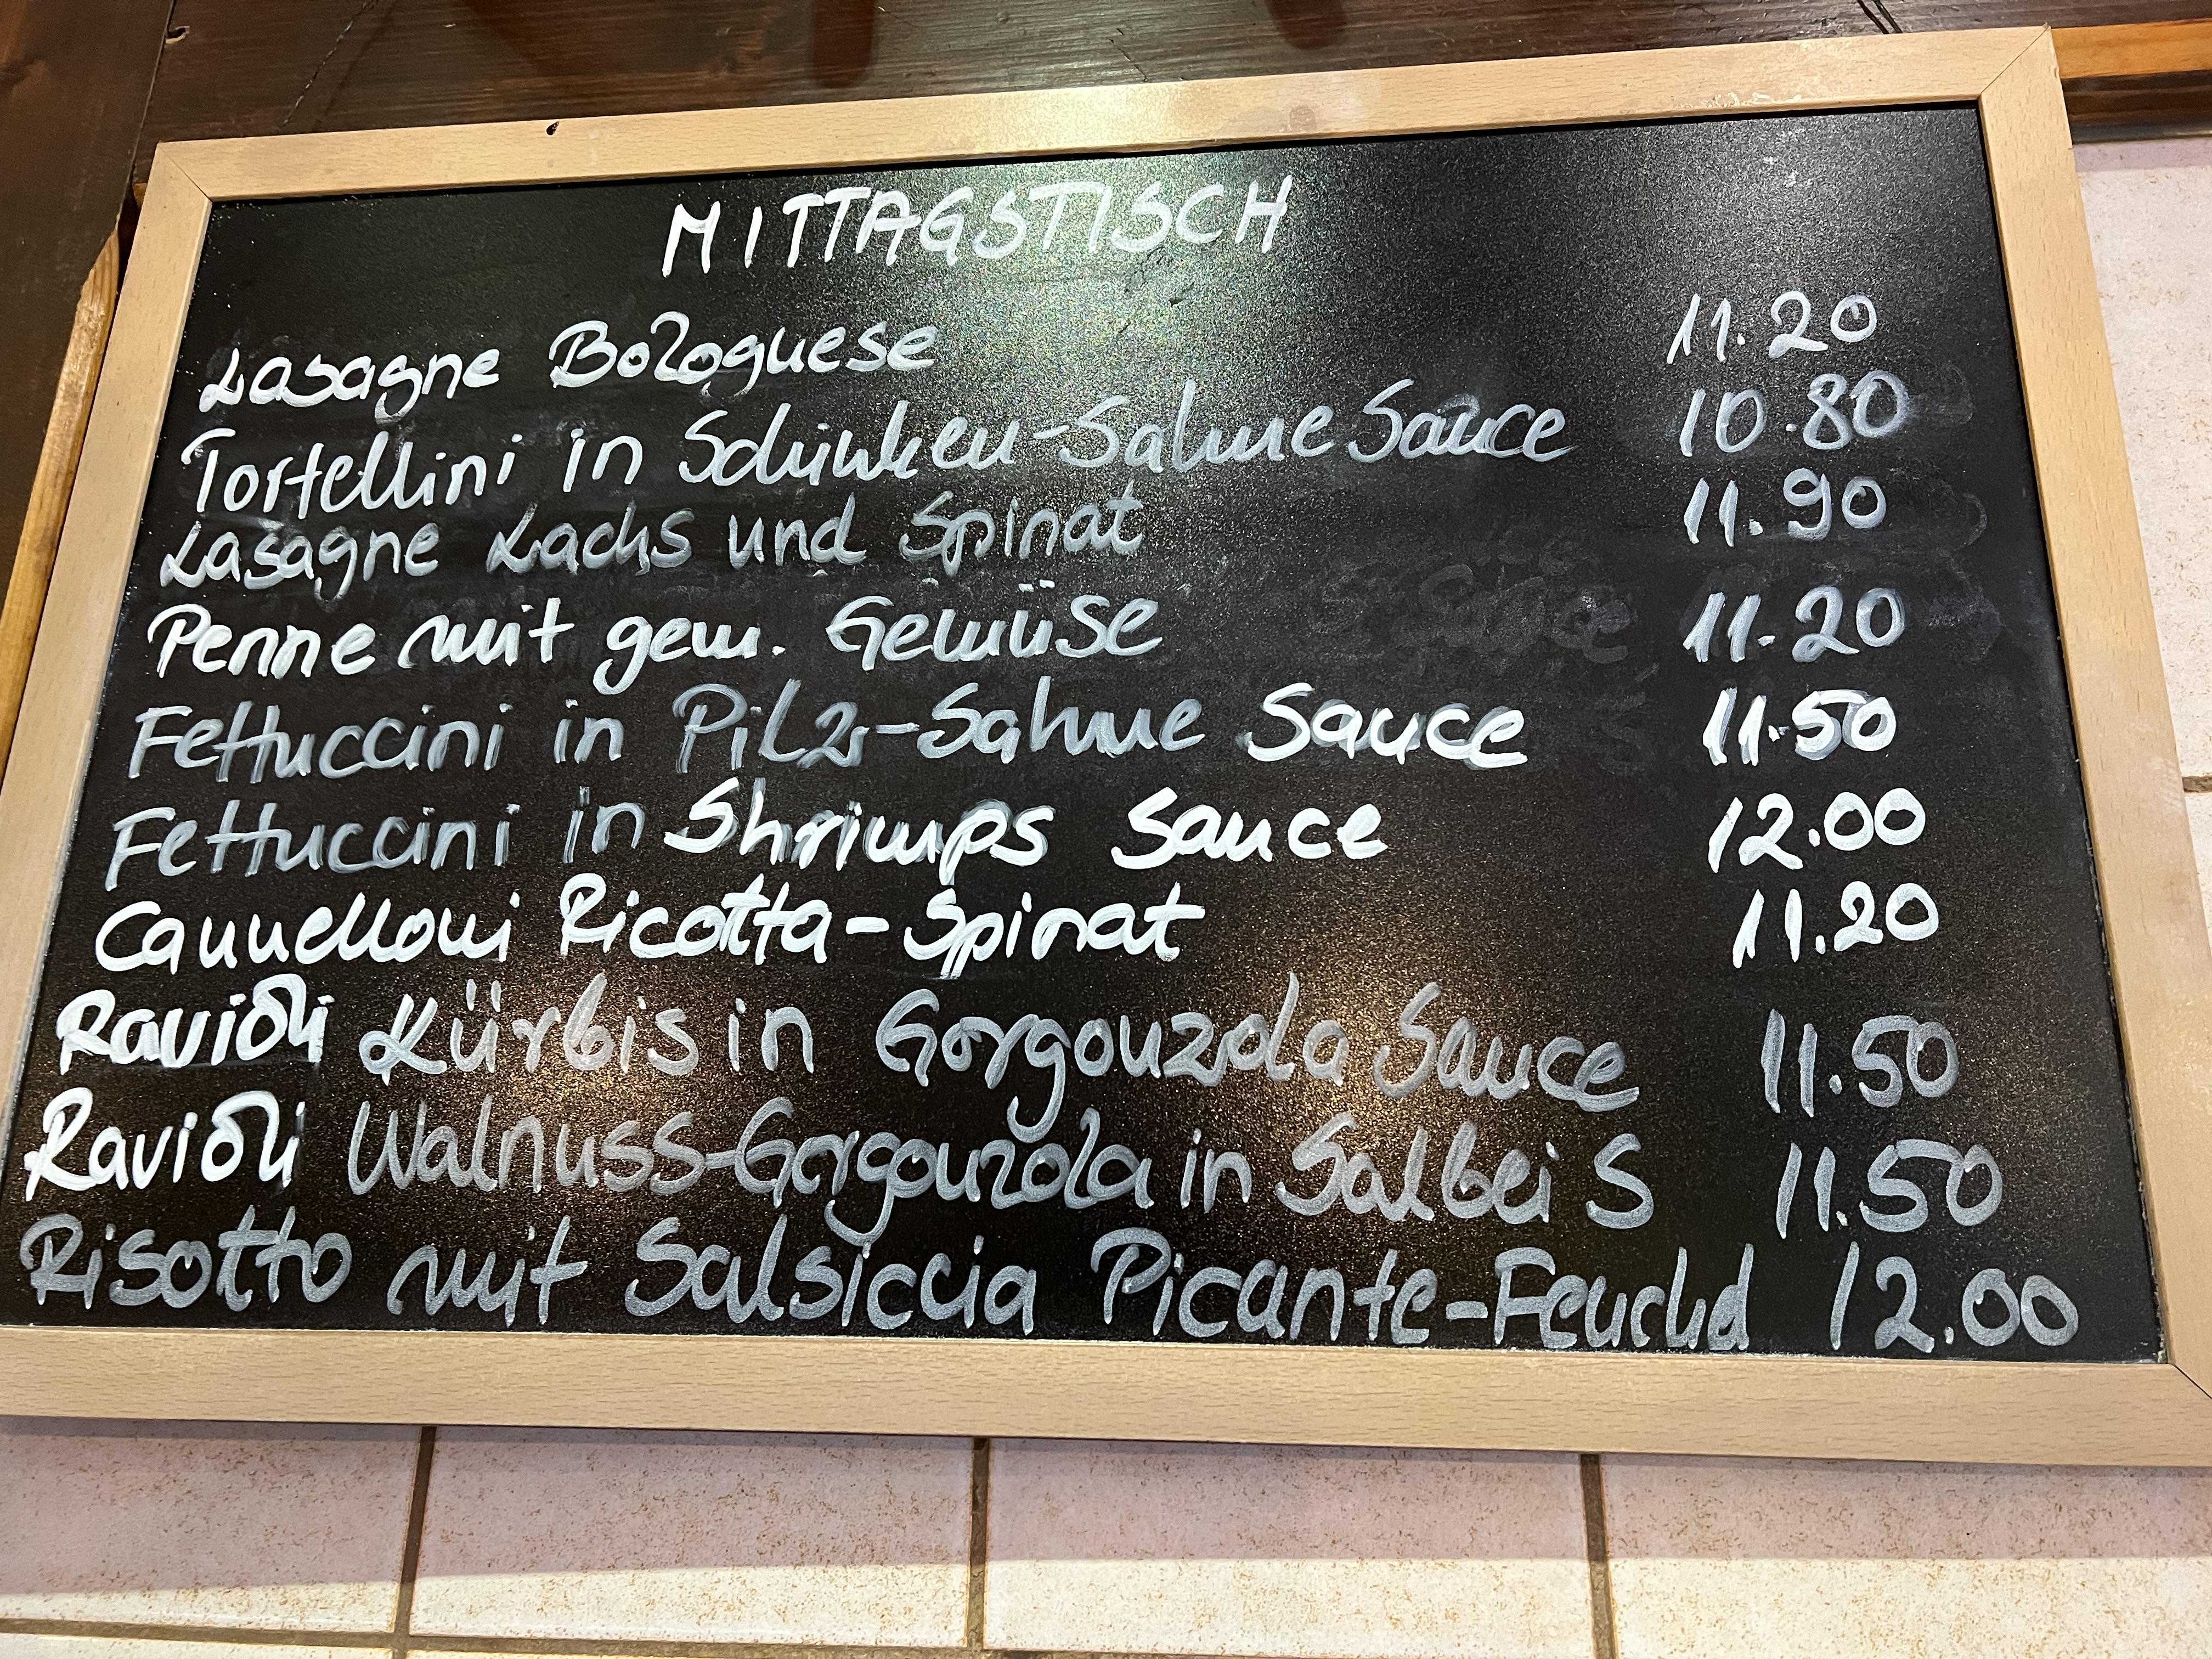 MITTAGSTISCH
Lasagne Bolognese 11.20
Tortellini in Schinken-Sahne Sauce 10.80
Lasagne Lachs und Spinat 11.90
Penne mit gem. Gemüse 11.20
Fettuccini in Pilz-Sahne Sauce 11.50
Fettuccini in Shrimps Sauce 12.00
Cannelloni Ricotta-Spinat 11.20
Ravioli Kürbis in Gorgonzola Sauce 11.50
Ravioli Walnuss-Gorgonzola in Salbei S 11.50
Risotto mit Salsiccia Picante-Fenchel 12.00